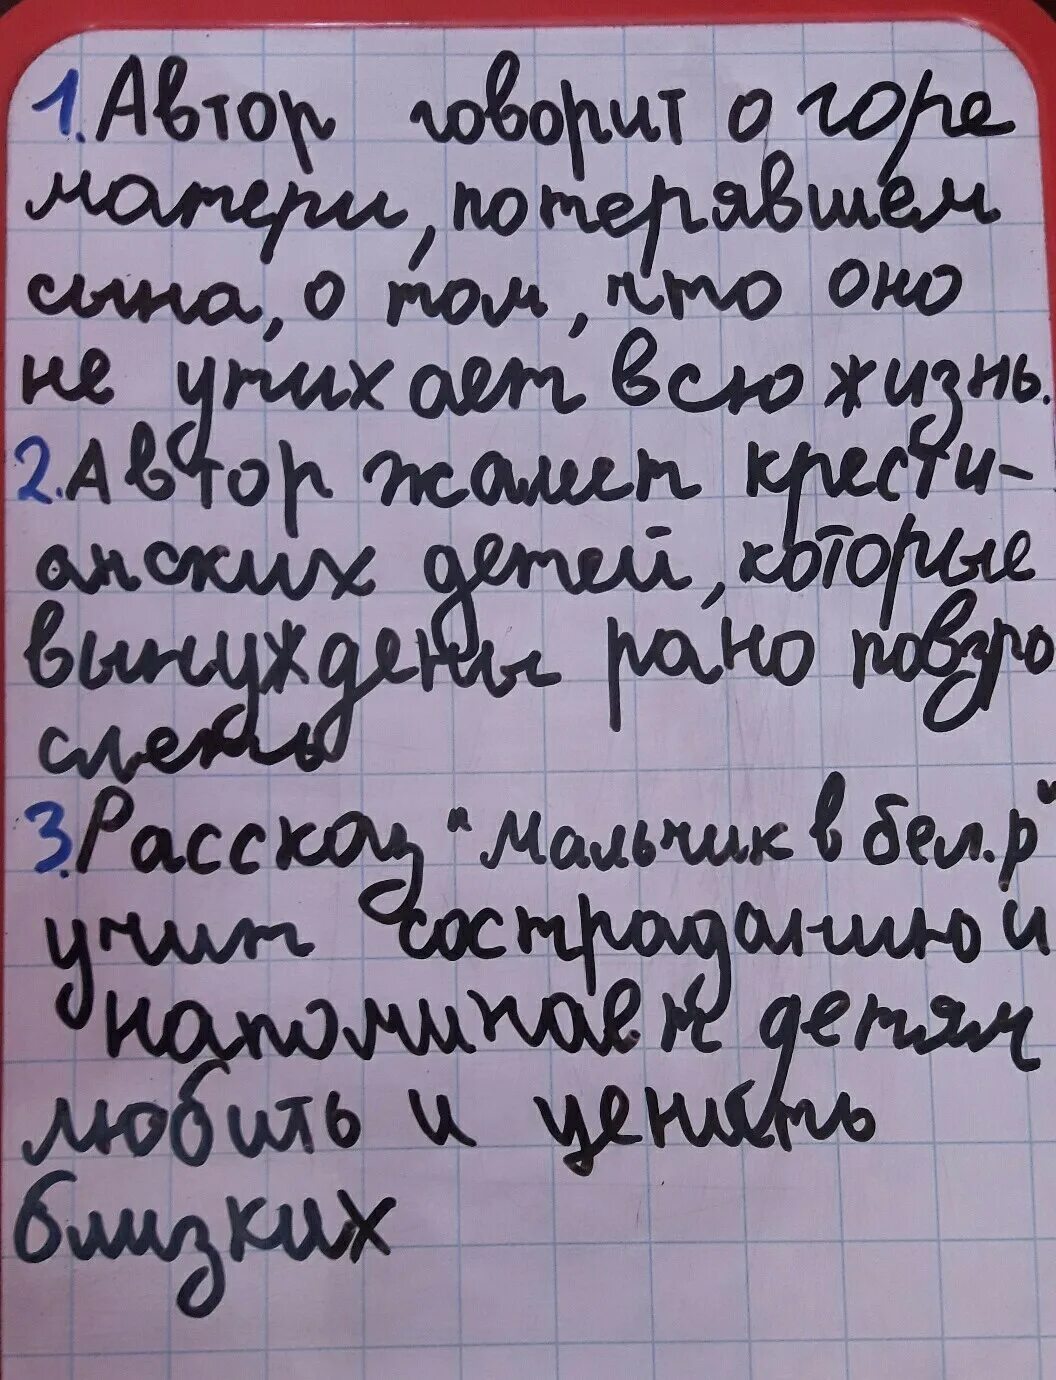 1. Автор говорит о горе
матери, потерявшем
сына, о том, что оно
не утихает всю жизнь.
2. Автор жалеет крести-
анских детей, которые
вынуждены рано повзро
слеть
3. Рассказ "мальчик в бел. р"
учит состраданию и
напоминает детям
любить и ценить
близких